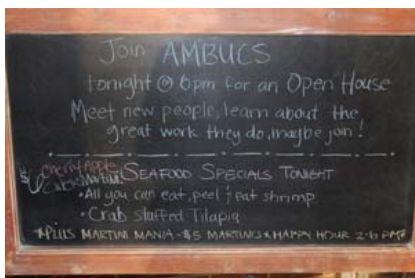 Join AMBUCS
tonight @ 6pm for an Open House
Meet new people, learn about the
great work they do, maybe join!
Cherry Apple
Martini
SEAFOOD SPECIALS TONIGHT
• All you can eat, peel & eat shrimp
• Crab stuffed Tilapia
*PLUS MARTINI MANIA - $5 MARTINIS * HAPPY HOUR 2-6 PM*